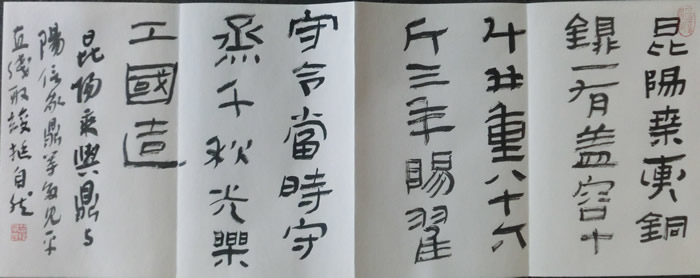 昆陽乘輿銅
鼎一有盖容十
斗并重八十六
斤三年陽翟
守令當時守
丞千秋佐樂
工國造
昆陽乘輿鼎与
陽信家鼎等多见平
直线取 挺自然